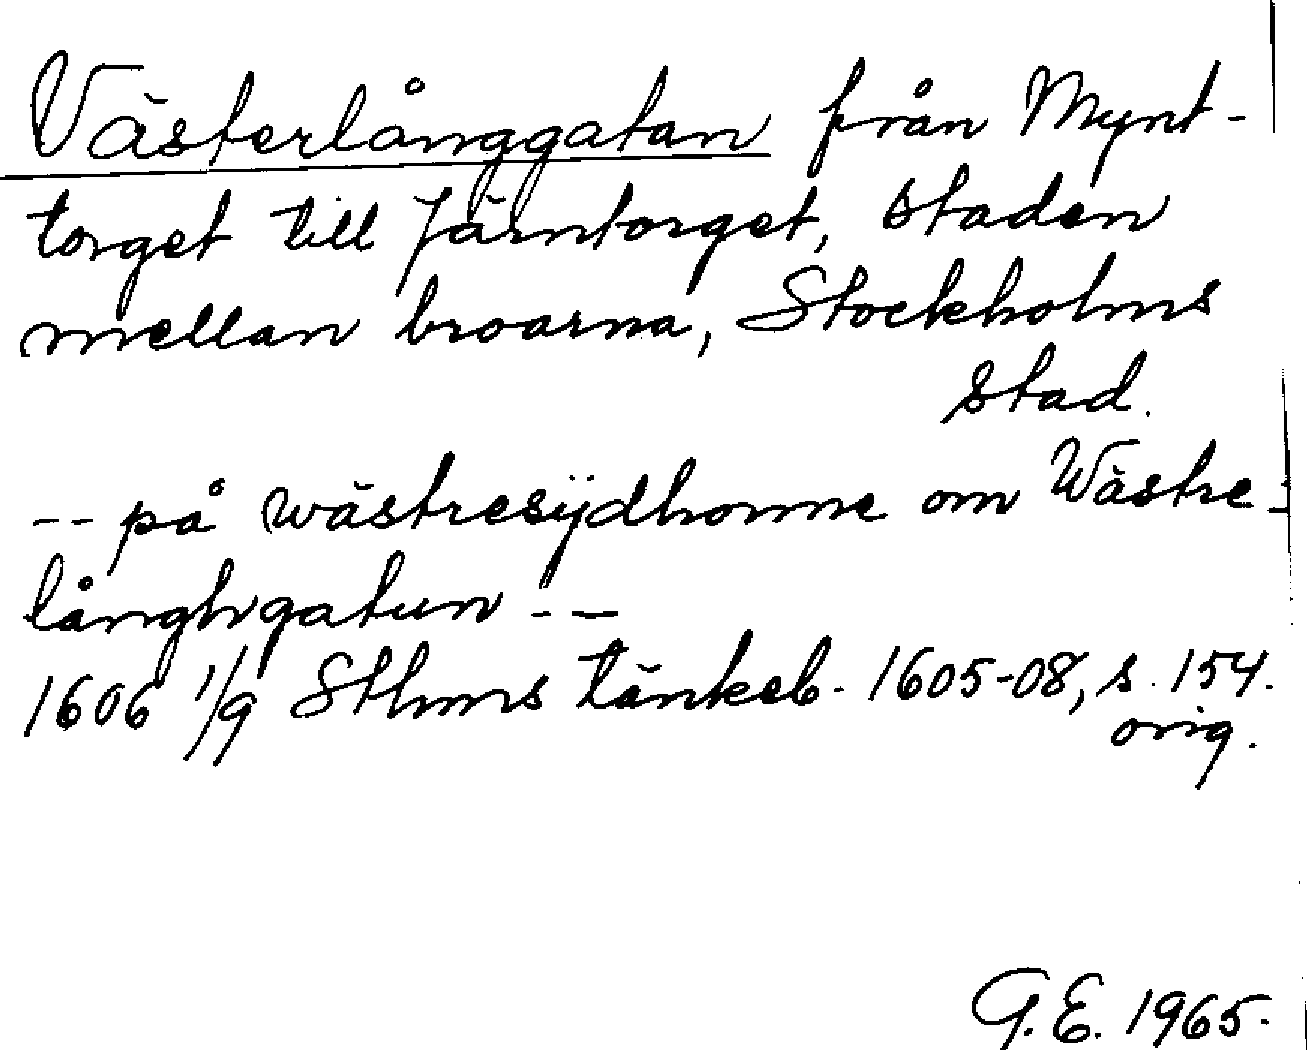 Västerlånggatan från Mynt-
torget till Järntorget, staden
mellan broarna, Stockholms
stad.
-- på wästresÿdhonne om Wästre-
långhgatun --
1606 1/9 Sthms tänkeb. 1605-08, s. 154.
orig.
G.E. 1965.